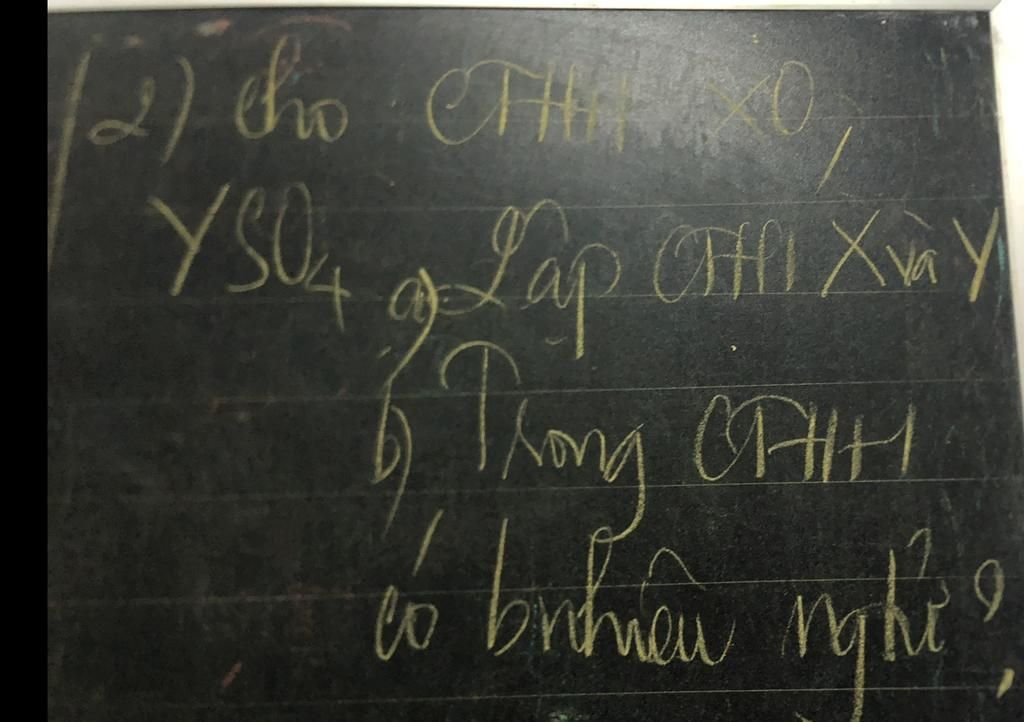 2) Cho CTHH XO,
YSO4 a) Lập CTHH X và Y
b) Trong CTHH
có bnhiêu nghtử ?